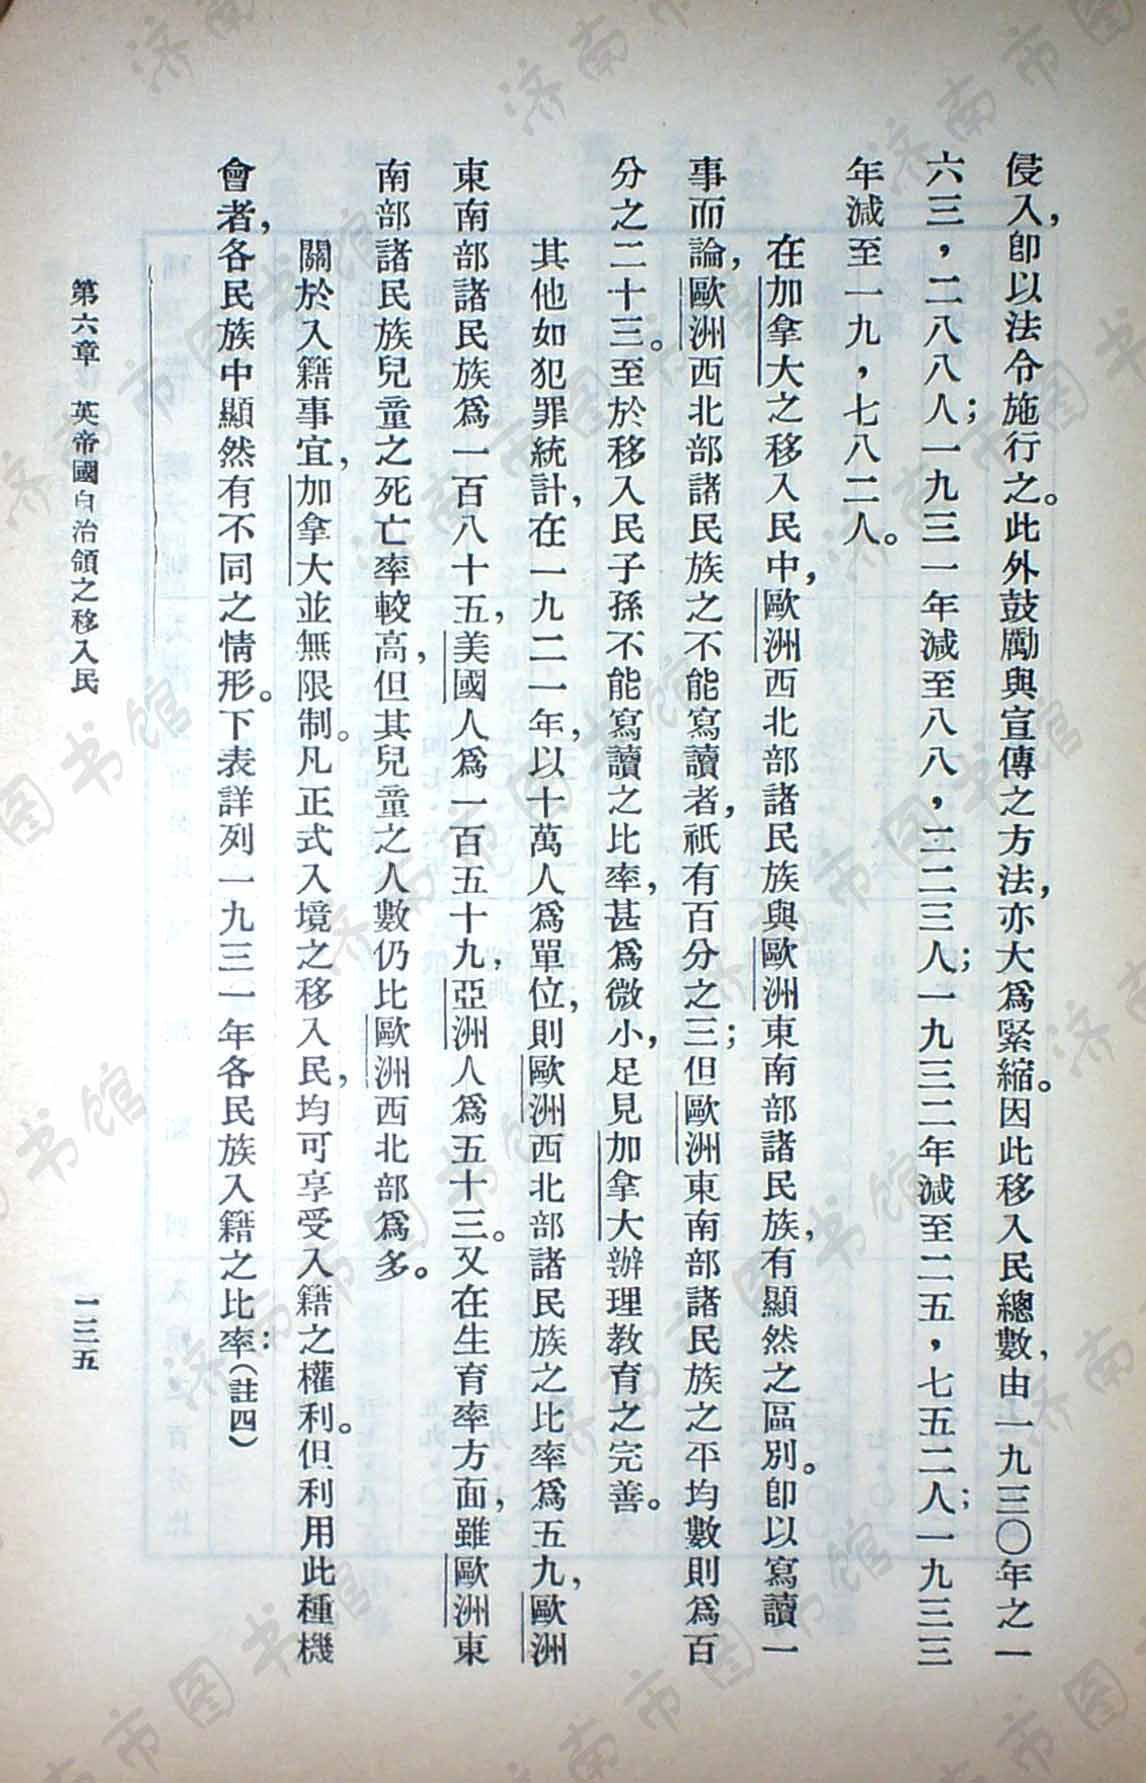 侵入，卽以法令施行之。此外鼓勵與宣傳之方法，亦大爲緊縮。因此移入民總數，由一九三〇年之一
六三，二八八人；一九三一年減至八八，二二三人；一九三二年減至二五，七五二人；一九三三
年減至一九，七八二人。
在加拿大之移入民中，歐洲西北部諸民族與歐洲東南部諸民族，有顯然之區別。卽以寫讀一
事而論，歐洲西北部諸民族之不能寫讀者，祇有百分之三；但歐洲東南部諸民族之平均數則爲百
分之二十三。至於移入民子孫不能寫讀之比率，甚爲微小，足見加拿大辦理教育之完善。
其他如犯罪統計，在一九二一年，以十萬人爲單位，則歐洲西北部諸民族之比率爲五九，歐洲
東南部諸民族爲一百八十五，美國人爲一百五十九，亞洲人爲五十三。又在生育率方面，雖歐洲東
南部諸民族兒童之死亡率較高，但其兒童之人數仍比歐洲西北部爲多。
關於入籍事宜，加拿大並無限制。凡正式入境之移入民，均可享受入籍之權利。但利用此種機
會者，各民族中顯然有不同之情形。下表詳列一九三一年各民族入籍之比率：（註四）
第六章　英帝國自治領之移入民　一二五
济南市图书馆